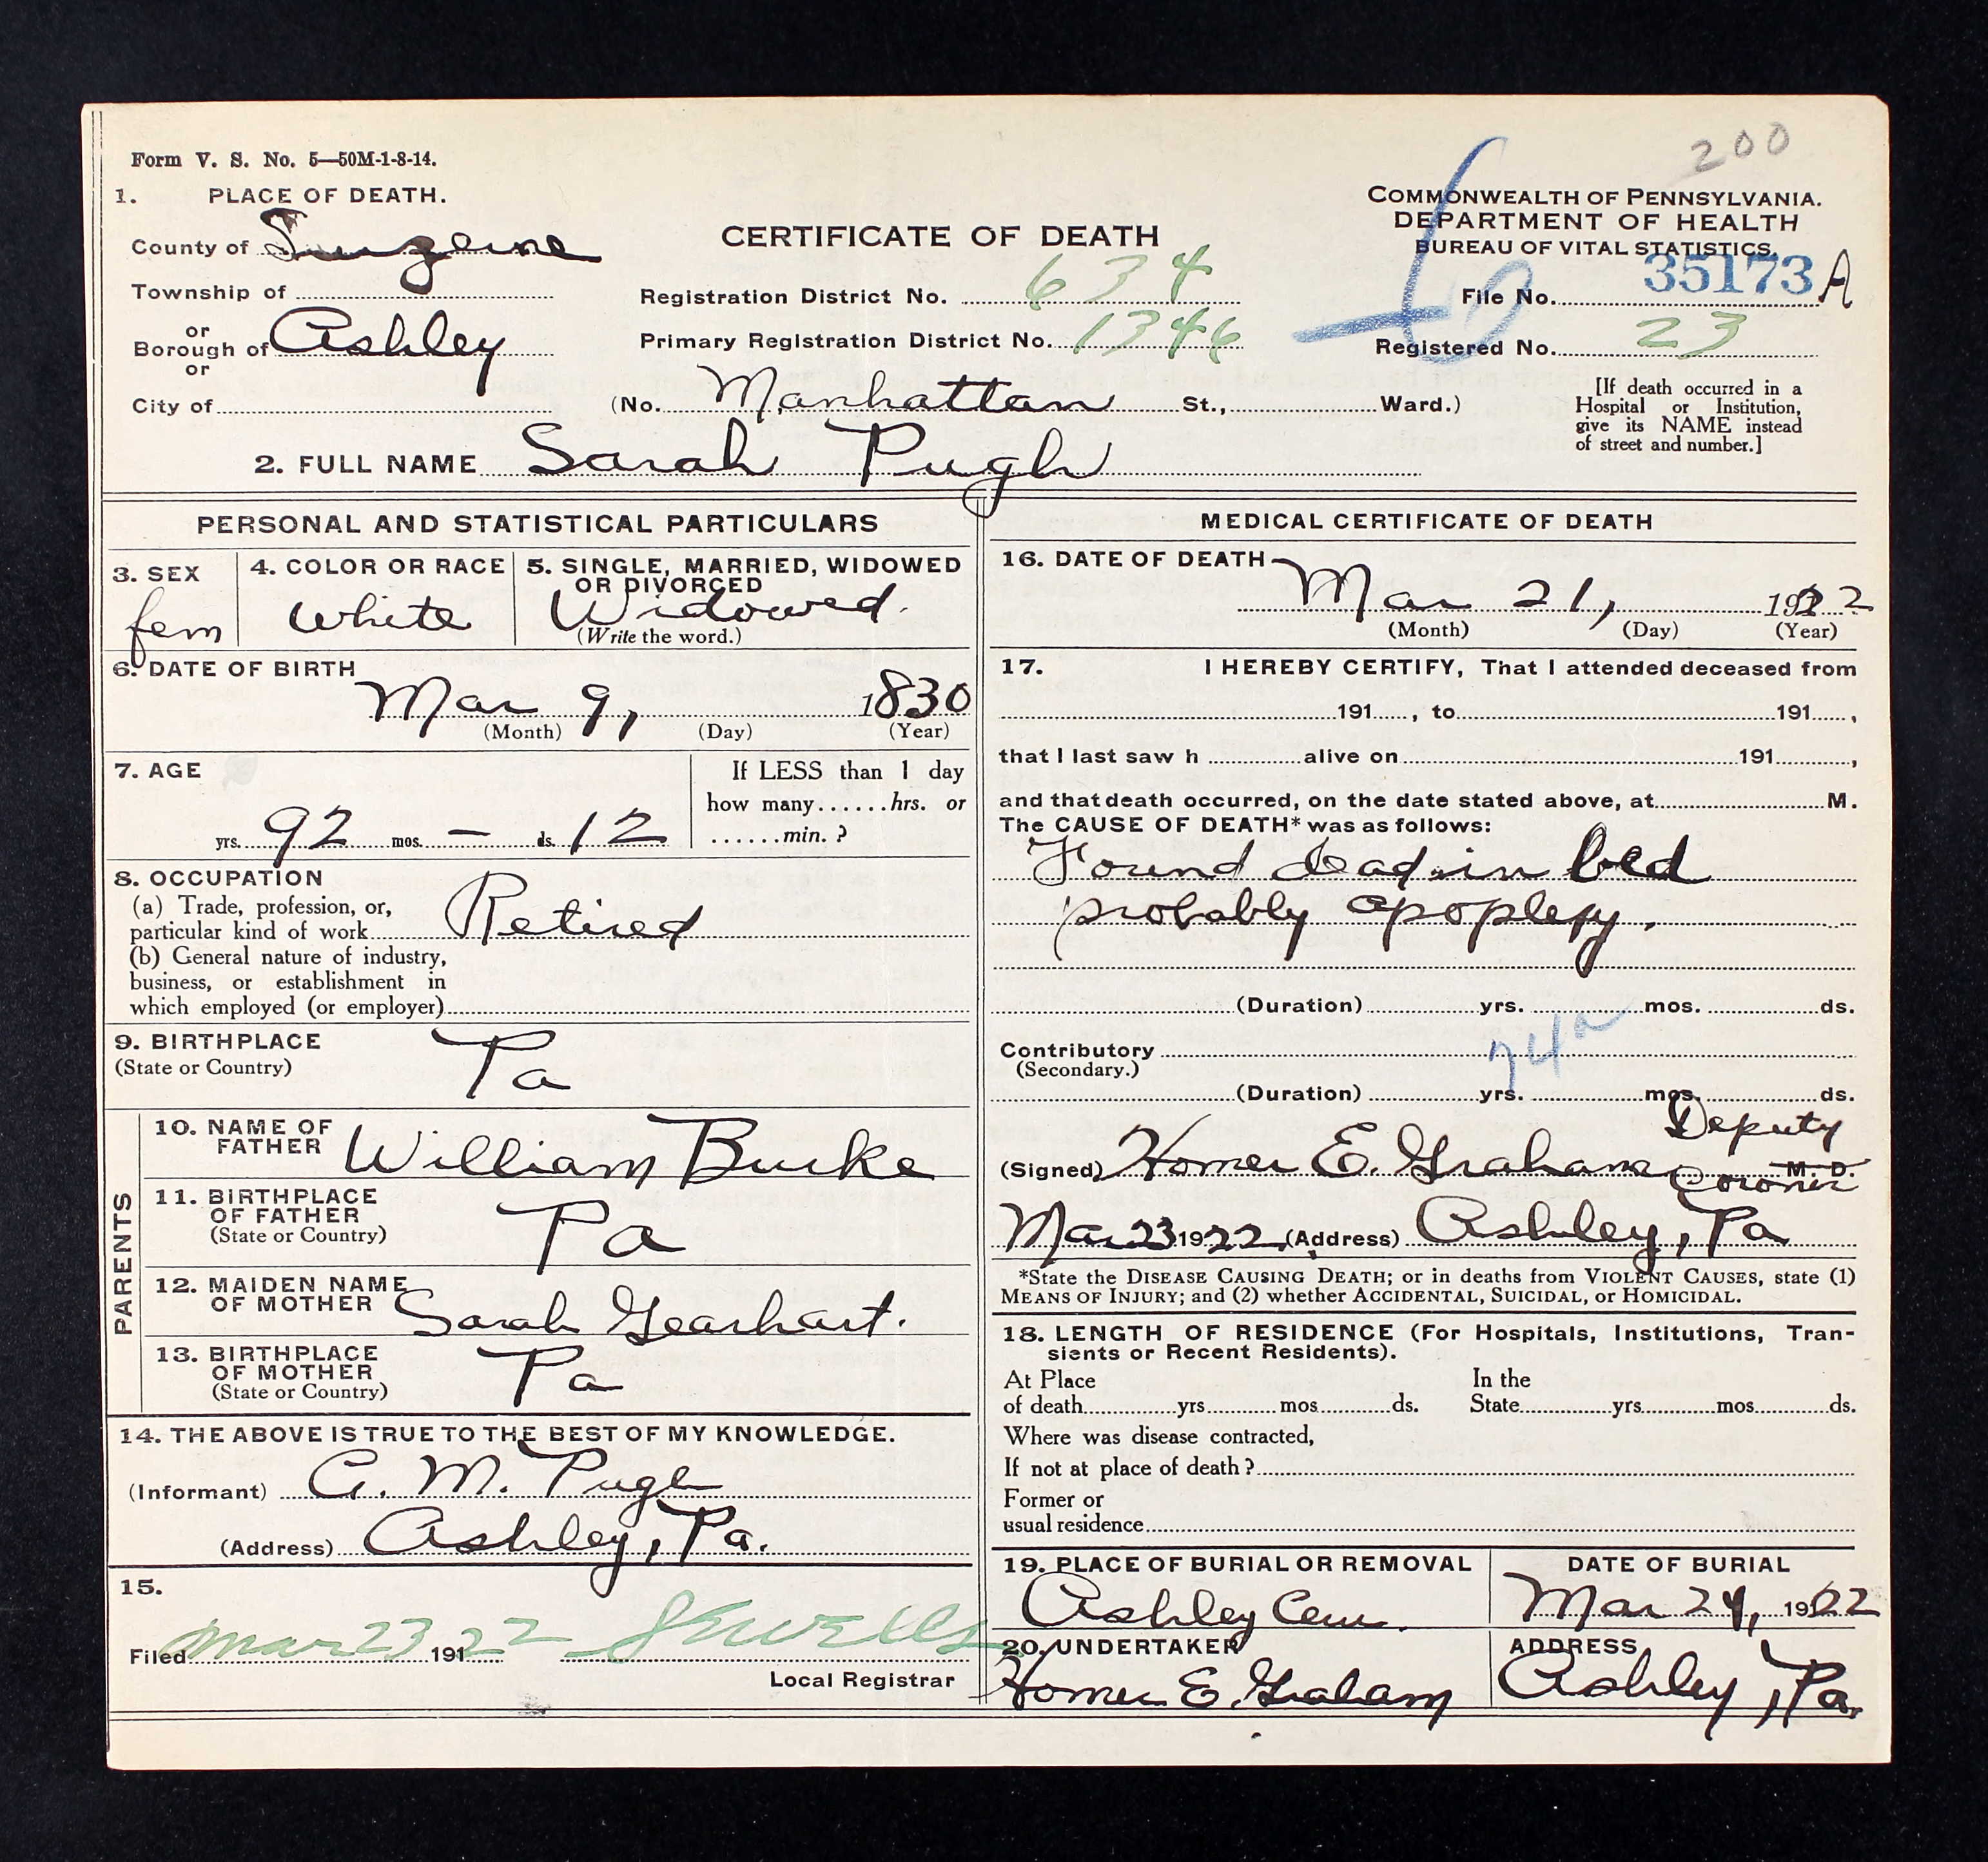 200
Form V. S. No. 5—50M-1-8-14.
1. PLACE OF DEATH.
County of Luzerne
Township of
or
Borough of Ashley
or
City of
CERTIFICATE OF DEATH
Registration District No. 634
Primary Registration District No. 1346
(No. Manhattan St., Ward.)
COMMONWEALTH OF PENNSYLVANIA.
DEPARTMENT OF HEALTH
BUREAU OF VITAL STATISTICS.
File No. 35173 A
Registered No. 23
[If death occurred in a
Hospital or Institution,
give its NAME instead
of street and number.]
2. FULL NAME Sarah Pugh
PERSONAL AND STATISTICAL PARTICULARS
3. SEX
fem
4. COLOR OR RACE
White
5. SINGLE, MARRIED, WIDOWED
OR DIVORCED
Widowed.
(Write the word.)
6. DATE OF BIRTH
Mar 9, 1830
(Month) (Day) (Year)
7. AGE
yrs. 92 mos. — ds. 12
If LESS than 1 day
how many......hrs. or
......min. ?
8. OCCUPATION
(a) Trade, profession, or,
particular kind of work Retired
(b) General nature of industry,
business, or establishment in
which employed (or employer)
9. BIRTHPLACE
(State or Country)
Pa
PARENTS
10. NAME OF
FATHER William Burke
11. BIRTHPLACE
OF FATHER
(State or Country)
Pa
12. MAIDEN NAME
OF MOTHER Sarah Gearhart.
13. BIRTHPLACE
OF MOTHER
(State or Country)
Pa
14. THE ABOVE IS TRUE TO THE BEST OF MY KNOWLEDGE.
(Informant) A. M. Pugh
(Address) Ashley, Pa.
15.
Filed Mar 23 191 22 Local Registrar
MEDICAL CERTIFICATE OF DEATH
16. DATE OF DEATH
Mar 21, 1922
(Month) (Day) (Year)
17. I HEREBY CERTIFY, That I attended deceased from
191......, to 191......,
that I last saw h alive on 191......,
and that death occurred, on the date stated above, at M.
The CAUSE OF DEATH* was as follows:
Found dead in bed
probably apoplexy.
(Duration) yrs. mos. ds.
74a
Contributory
(Secondary.)
(Duration) yrs. mos. ds.
Deputy
(Signed) Homer E. Graham M. D.
Coroner
Mar 23 1922 (Address) Ashley, Pa
*State the DISEASE CAUSING DEATH; or in deaths from VIOLENT CAUSES, state (1)
MEANS OF INJURY; and (2) whether ACCIDENTAL, SUICIDAL, or HOMICIDAL.
18. LENGTH OF RESIDENCE (For Hospitals, Institutions, Tran-
sients or Recent Residents).
At Place In the
of death yrs mos ds. State yrs mos ds.
Where was disease contracted,
If not at place of death ?
Former or
usual residence
19. PLACE OF BURIAL OR REMOVAL
Ashley Cem.
DATE OF BURIAL
Mar 24, 1922
20. UNDERTAKER
Homer E. Graham
ADDRESS
Ashley, Pa.